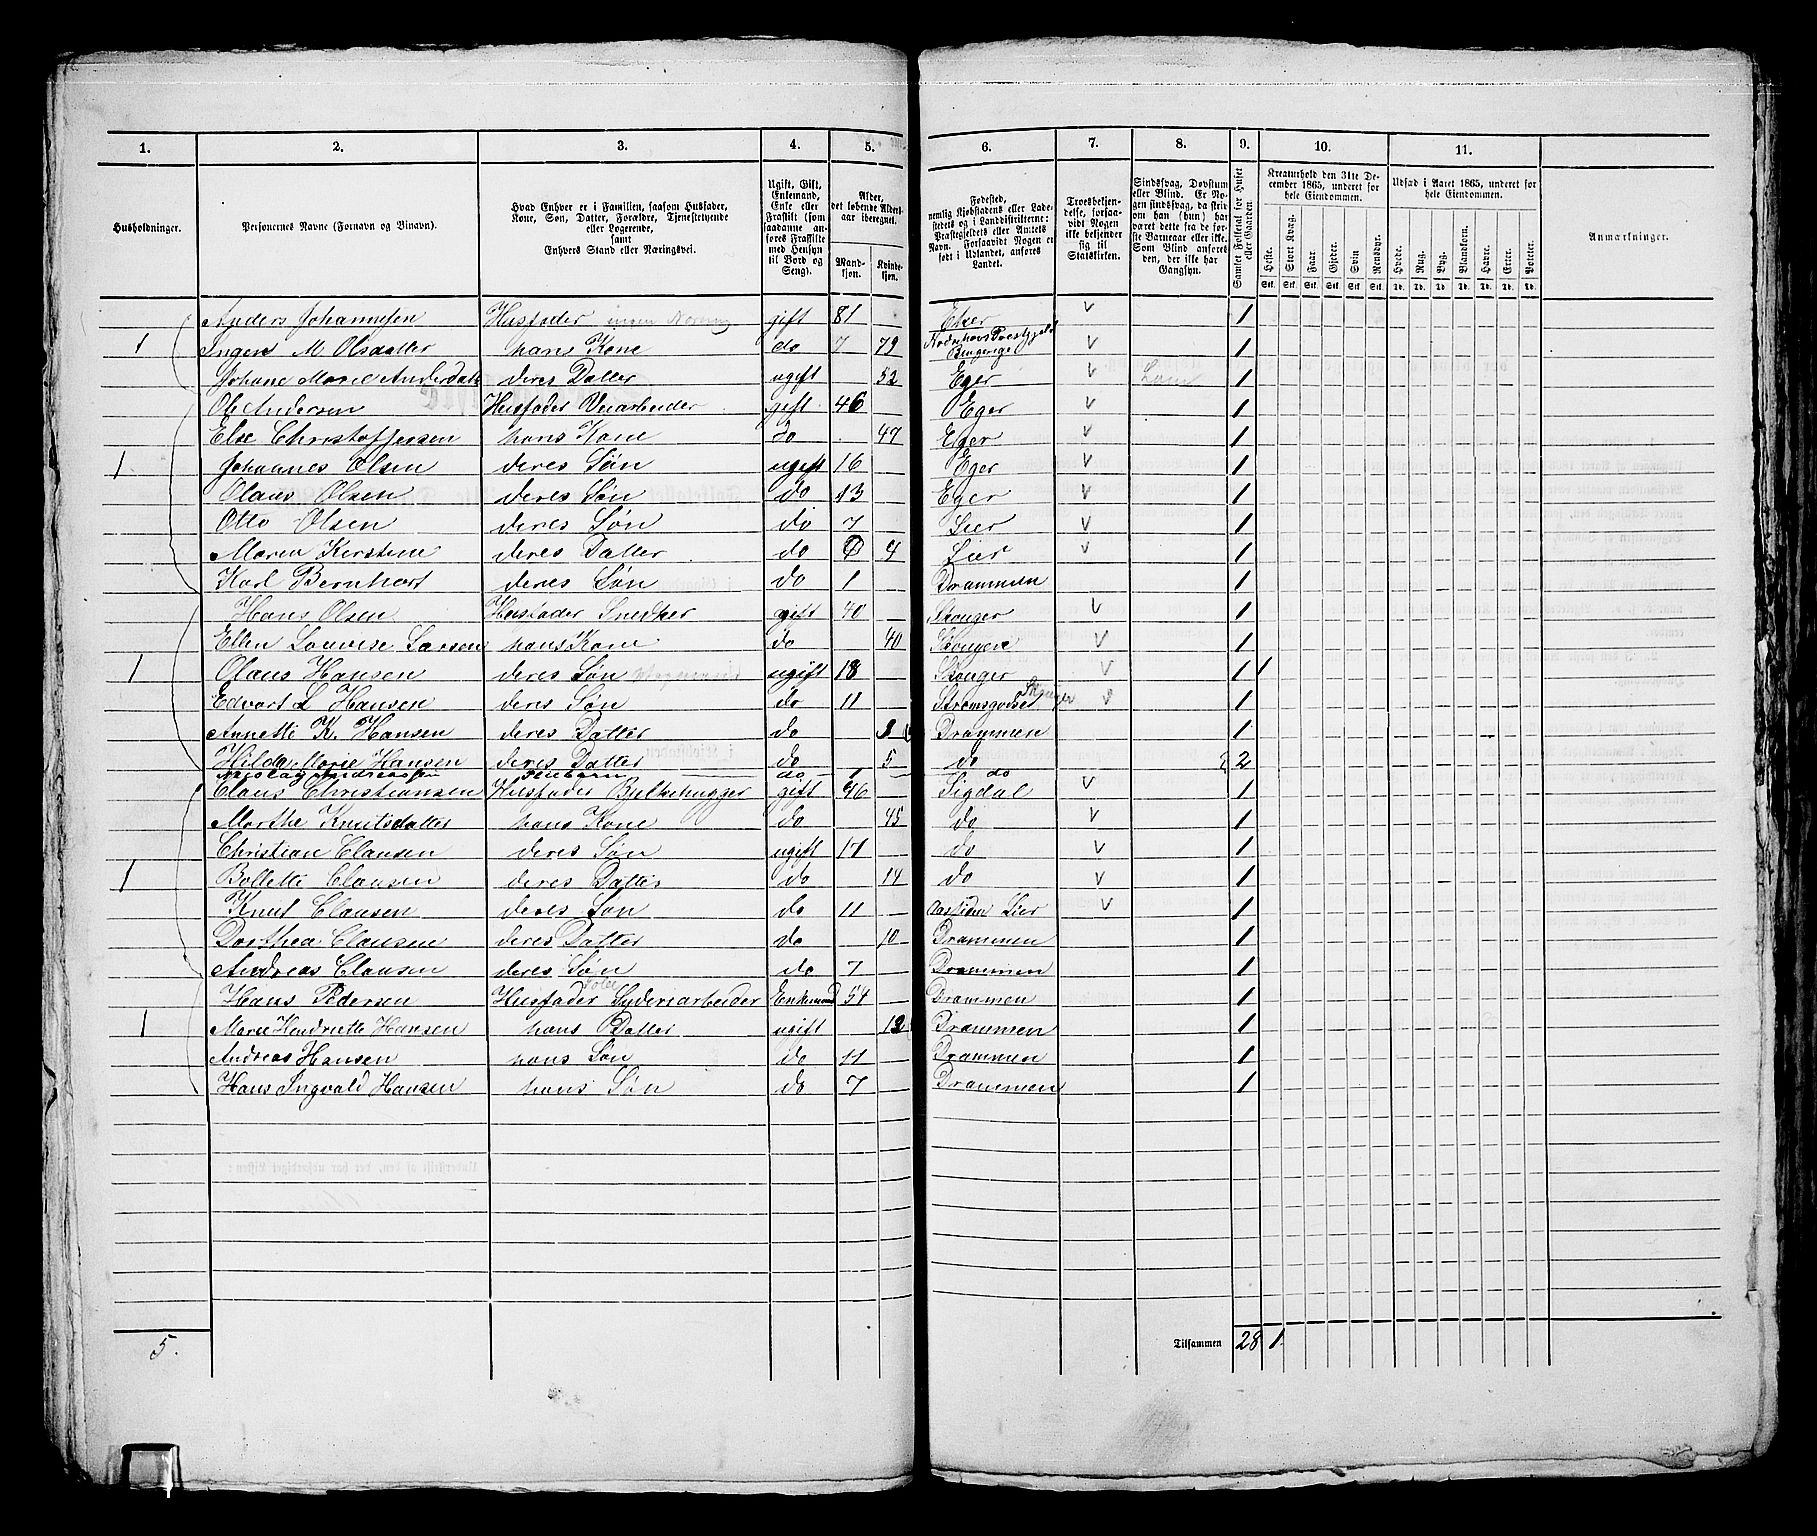 1. 2. 3. 4. 5. 6. 7. 8. 9. 10. 11.
Husholdninger.
Personernes Navne (Fornavn og Binavn).
Hvad Enhver er i Familien, saasom Husfader,
Kone, Søn, Datter, Forældre, Tjenestetyende
eller Logerende,
samt
Enhvers Stand eller Næringsvei.
Ugift, Gift,
Enkemand,
Enke eller
Fraskilt (som
saadanne an-
føres Fraskilte
med Hensyn
til Bord og
Seng).
Alder,
det løbende Alders-
aar iberegnet.
Mand-
kjøn.
Kvinde-
kjøn.
Fødested,
nemlig Kjøbstadens eller Lade-
stedets og i Landdistrikterne:
Præstegjeldets eller Amtets
Navn. Forsaavidt Nogen er
født i Udlandet, anføres
Landet.
Troesbekjen-
delse, forsaa-
vidt Nogen
ikke bekjender
sig til
Statskirken.
Sindssvag, Døvstum
eller Blind. Er No-
gen sindssvag, da striv
om han (hun) har
været dette fra de før-
ste Barneaar eller ikke.
Som Blind anføres
den, der ikke har
Gangsyn.
Samlet Folketal for Huset
eller Gaarden.
Kreaturhold den 31te De-
cember 1865, underet for
hele Eiendommen.
Heste. Stort Kvæg. Faar Gjeder. Svin Rensdyr.
Stk. Stk. Stk. Stk. Stk. Stk.
Udsæd i Aaret 1865, underet for
hele Eiendommen.
Hvede. Rug. Byg. Blandkorn. Havre. Erter. Poteter.
Td. Td. Td. Td. Td. Td. Td.
Anmærkninger.
Anders Johannesen Husfader ingen Næring gift 81 Eker v 1
1 Ingen M Olsdatter hans Kone do 7 79 Ringerige v 1
Johane Marie Andersdatt deres Datter ugift 52 Eger v Lam 1
Ole Andersen Husfader Veiarbeider gift 46 Eger v 1
Else Christoffersen hans Kone do 47 Eger v 1
1 Johannes Olsen deres Søn ugift 16 Eger v 1
Olaus Olsen deres Søn do 13 Eger v 1
Otto Olsen deres Søn do 7 Lier v 1
Maren Kerstine deres Datter do 4 Lier v 1
Karl Bernhart deres Søn do 1 Drammen 1
Hans Olsen Husfader Snedker gift 40 Skouger v 1
Ellen Lovise Larsen hans Kone do 40 Skouger v 1
1 Olaus Hansen deres Søn ugift 18 Skouger v 1 1
Edvart L Hansen deres Søn do 11 Strømsgodset Skouger v 1
Annette K. Hansen deres Datter do 8 Drammen 1
Hilda Marie Hansen deres Datter do 5 do 2 2
Nicolay Andreassen Pleiebarn do 1 do
Claus Christiansen Husfader Bjelkehugger gift 46 Sigdal v 1
Marthe Knutsdatter hans Kone do 45 do v 1
Christian Clausen deres Søn ugift 17 do v 1
1 Bollette Clausen deres Datter do 14 do v 1
Knut Clausen deres Søn do 11 Lier v 1
Dorthea Clausen deres Datter do 10 Drammen 1
Andreas Clausen deres Søn do 7 Drammen 1
Hans Pedersen Husfader enkemand 54 Drammen 1
1 Marie Hendriette Hansen hans Datter ugift 12 Drammen 1
Andreas Hansen hans Søn do 11 Drammen 1
Hans Ingvald Hansen hans Søn do 7 Drammen 1
5. Tilsammen 28 1.